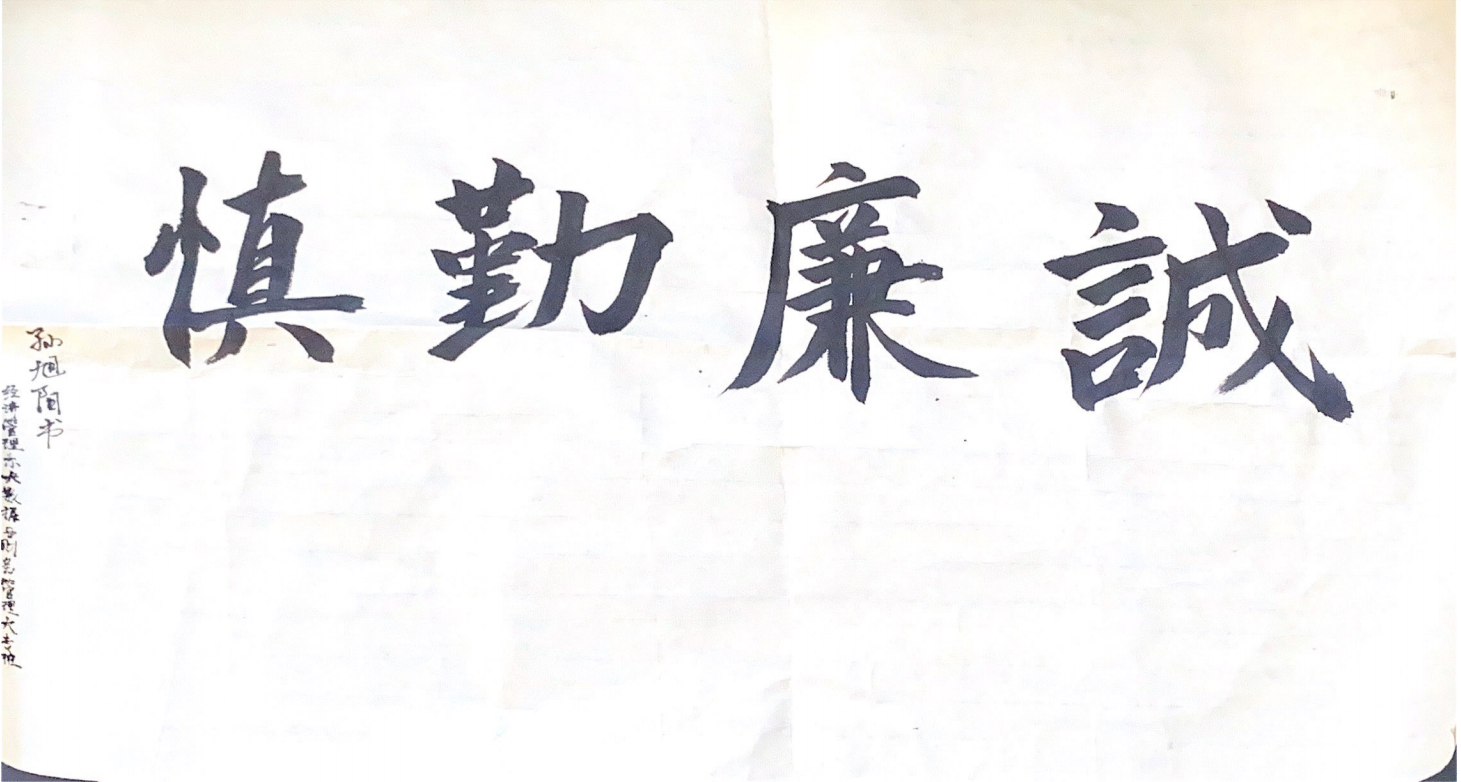 誠廉勤慎
孙旭阳书
经济管理系大数据与财务管理大专班